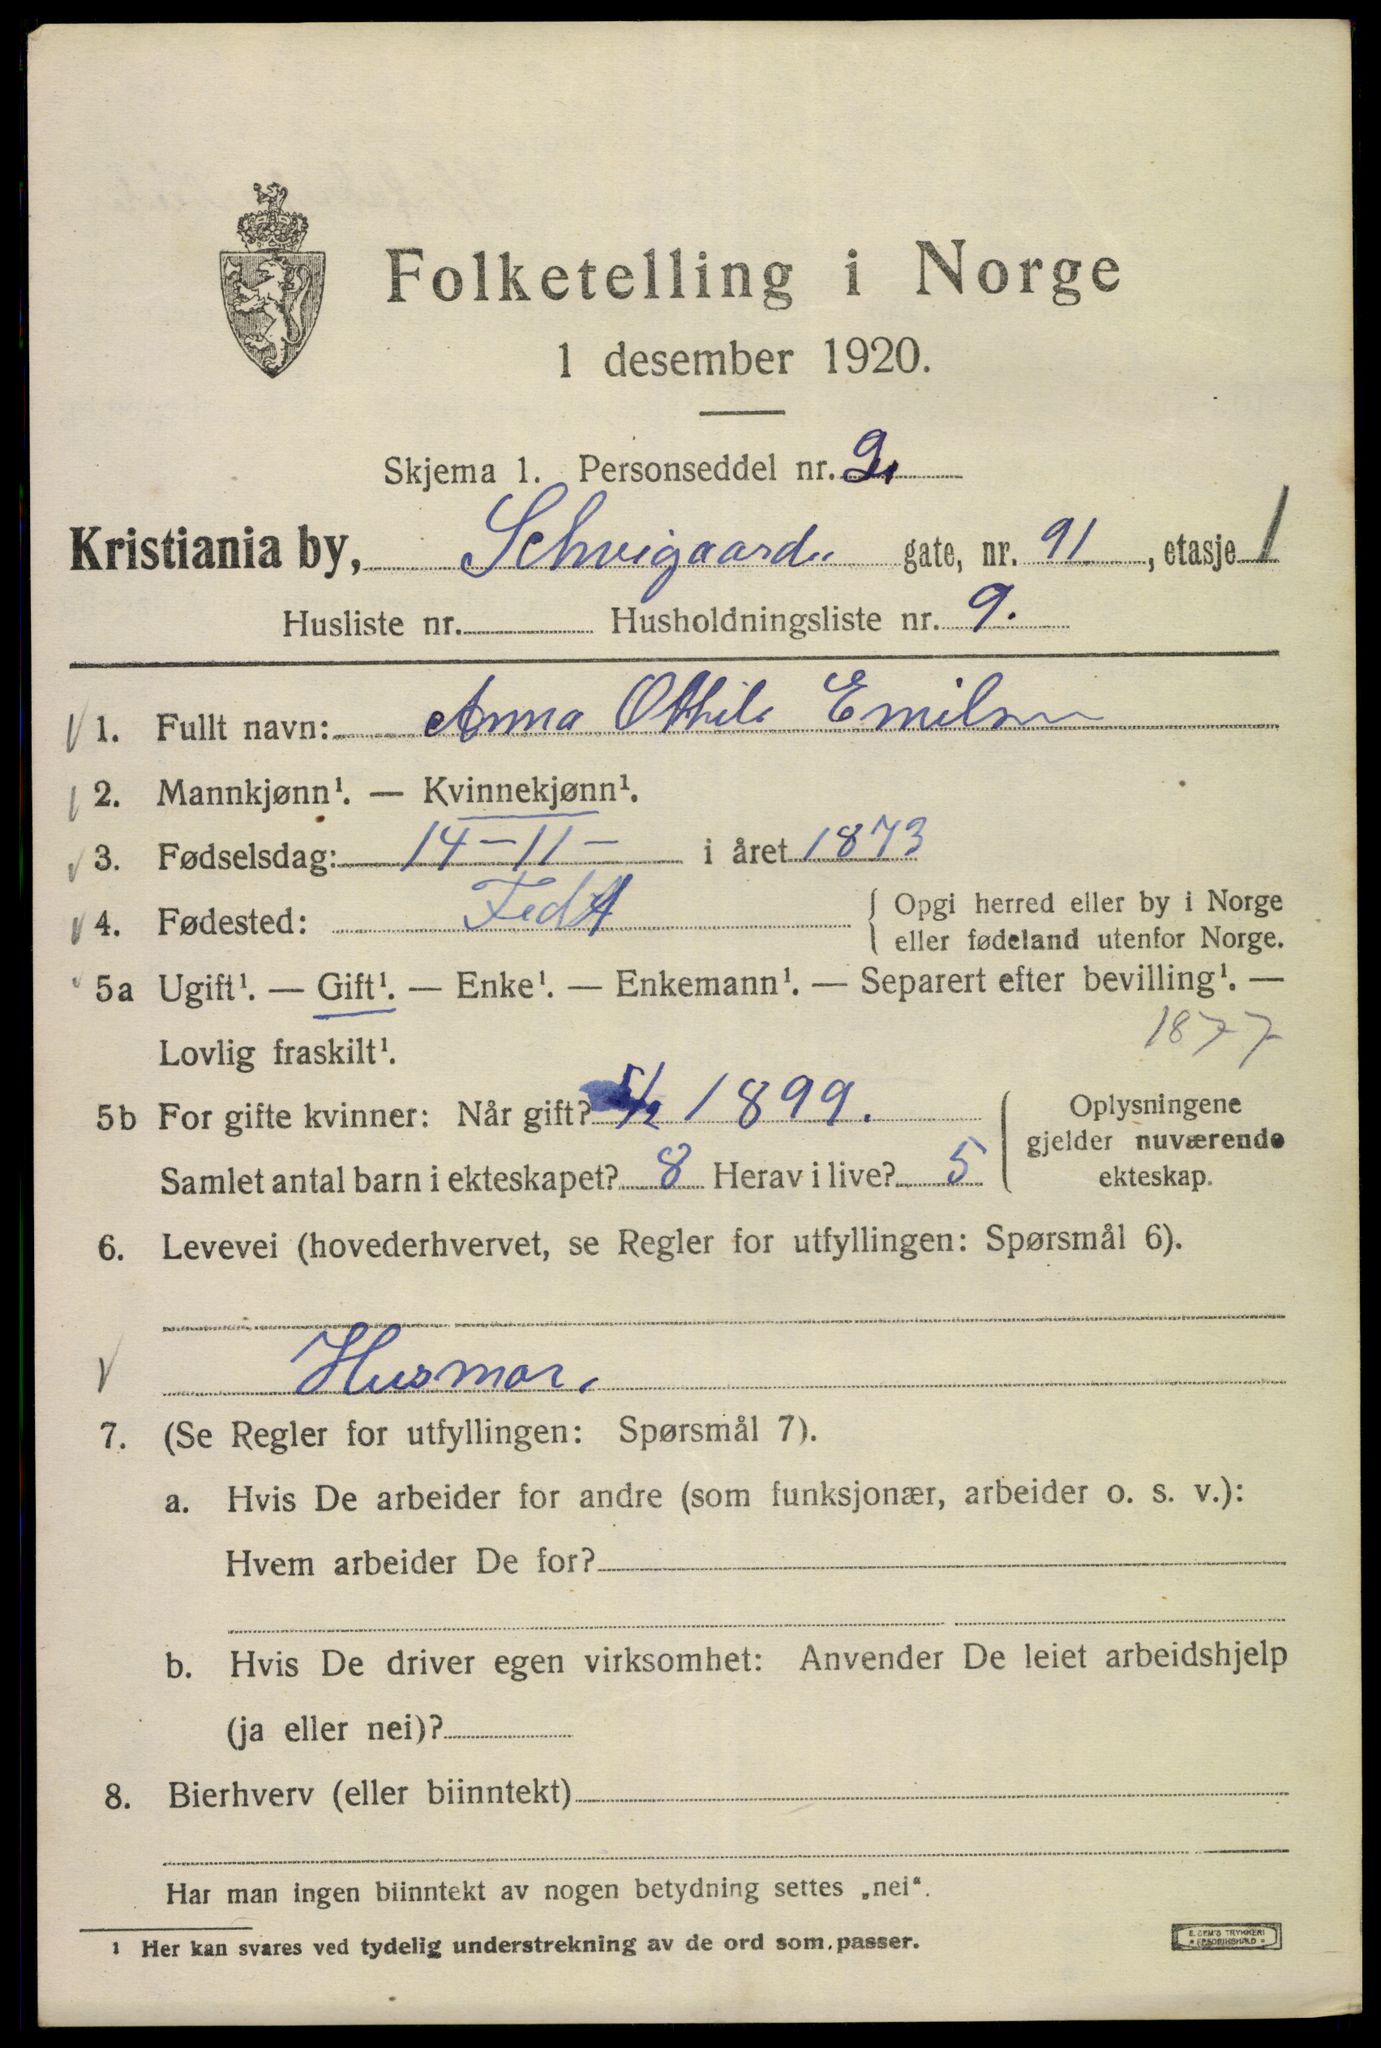 Folketelling i Norge
1 desember 1920.
Skjema 1. Personseddel nr. 2.
Kristiania by, Schweigaards gate, nr. 91, etasje 1
Husliste nr. Husholdningsliste nr. 9.
1. Fullt navn: Anna Othile Emilsen
2. Mannkjønn¹. — Kvinnekjønn¹.
3. Fødselsdag: 14-11- i året 1873
4. Fødested: { Opgi herred eller by i Norge
eller fødeland utenfor Norge.
5a Ugift¹. — Gift¹. — Enke¹. — Enkemann¹. — Separert efter bevilling¹. —
Lovlig fraskilt¹. 1877
5b For gifte kvinner: Når gift? 1899.
Samlet antal barn i ekteskapet? 8 Herav i live? 5
{ Oplysningene
gjelder nuværende
ekteskap.
6. Levevei (hovederhvervet, se Regler for utfyllingen: Spørsmål 6).
Husmor.
7. (Se Regler for utfyllingen: Spørsmål 7).
a. Hvis De arbeider for andre (som funksjonær, arbeider o. s. v.):
Hvem arbeider De for?
b. Hvis De driver egen virksomhet: Anvender De leiet arbeidshjelp
(ja eller nei)?
8. Bierhverv (eller biinntekt)
Har man ingen biinntekt av nogen betydning settes „nei“.
¹ Her kan svares ved tydelig understrekning av de ord som passer.
E. SEM'S TRYKKERI
FREDRIKSHALD